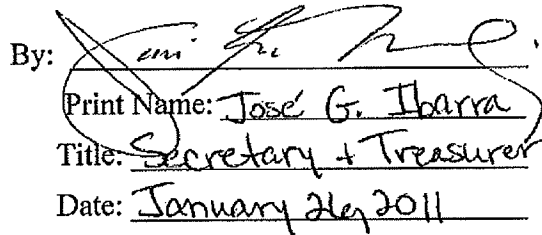 By:
Print Name: José G. Ibarra
Title: Secretary + Treasurer
Date: January 26, 2011